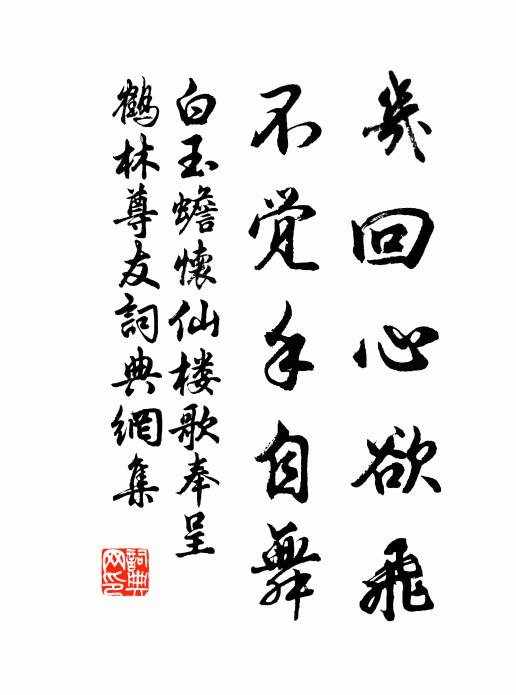 幾回心欲飛
不覚手自舞
白玉蟾懷仙楼歌奉呈
鶴林尊友詞典網集
詞典網印